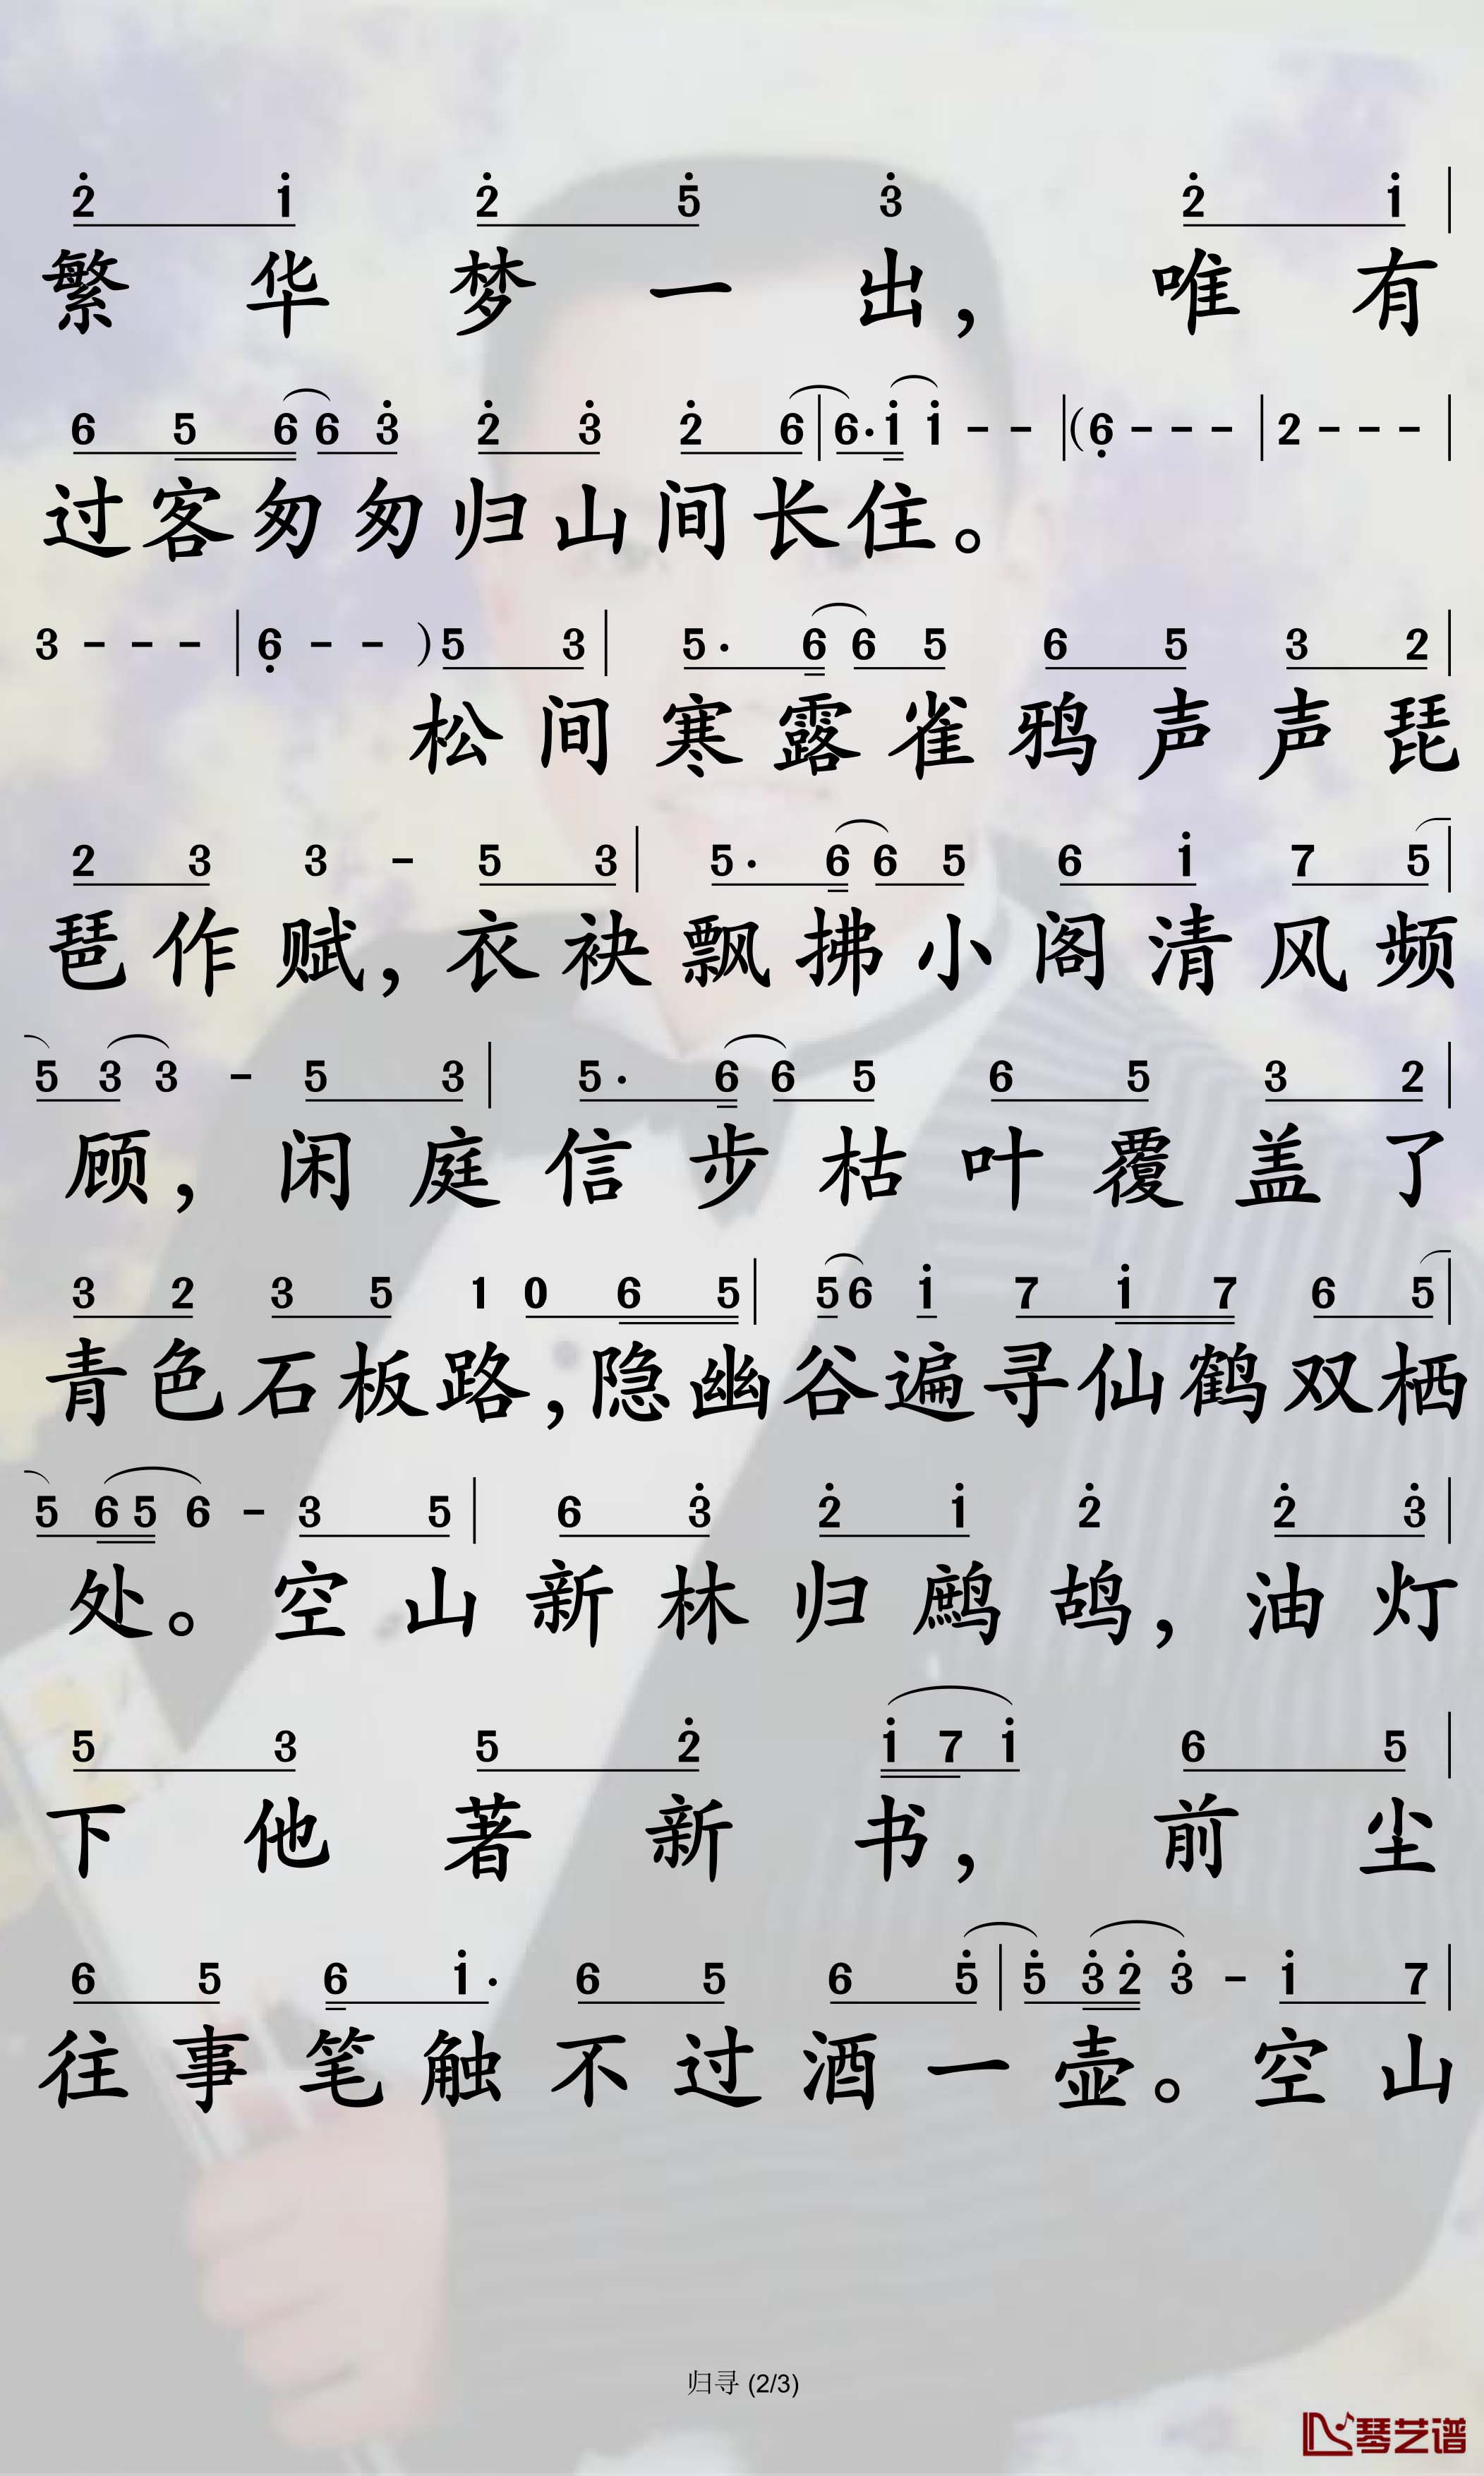 2̇ 1̇ 2̇ 5̇ 3̇ 2̇ 1̇ |
繁华梦一出，唯有
6 5 6 6 3̇ 2̇ 3̇ 2̇ 6 | 6· 1̇ 1̇ - - | ( 6̣ - - - | 2 - - - |
过客匆匆归山间长住。
3 - - - | 6̣ - - ) 5 3 | 5· 6 6 5 6 5 3 2 |
松间寒露雀鸦声声琵
2 3 3 - 5 3 | 5· 6 6 5 6 1̇ 7 5 |
琶作赋，衣袂飘拂小阁清风频
5 3 3 - 5 3 | 5· 6 6 5 6 5 3 2 |
顾，闲庭信步枯叶覆盖了
3 2 3 5 1 0 6 5 | 5 6 1̇ 7 1̇ 7 6 5 |
青色石板路，隐幽谷遍寻仙鹤双栖
5 6 5 6 - 3 5 | 6 3̇ 2̇ 1̇ 2̇ 2̇ 3̇ |
处。空山新林归鹧鸪，油灯
5 3 5 2̇ 1̇ 7 1̇ 6 5 |
下他著新书，前尘
6 5 6 1̇· 6 5 6 5̇ | 5̇ 3̇ 2̇ 3̇ - 1̇ 7 |
往事笔触不过酒一壶。空山
归寻 (2/3)
琴艺谱